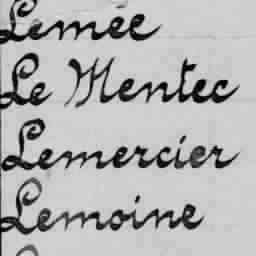 Lemée
Le Mentec
Lemercier
Lemoine